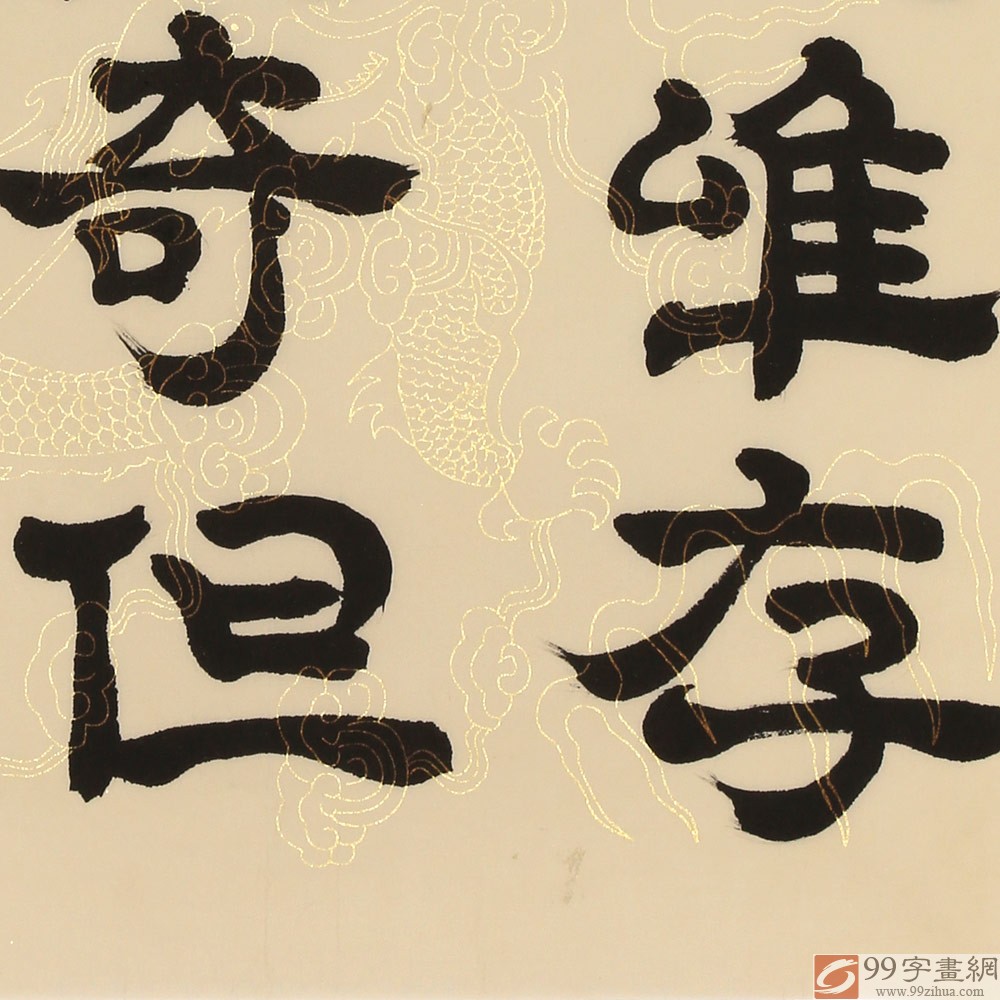 维存
奇但
99字畫網
www.99zihua.com